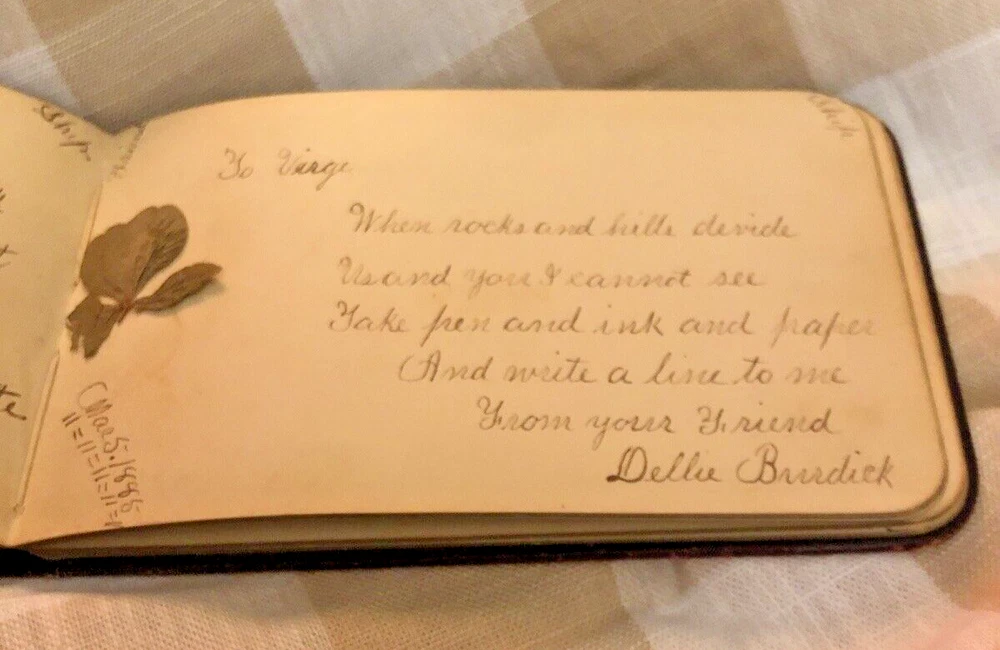 To Virge
When rocks and hills devide
Us and you I cannot see
Take pen and ink and paper
And write a line to me
From your Friend
Dellie Burdick
Mar 5. 1886